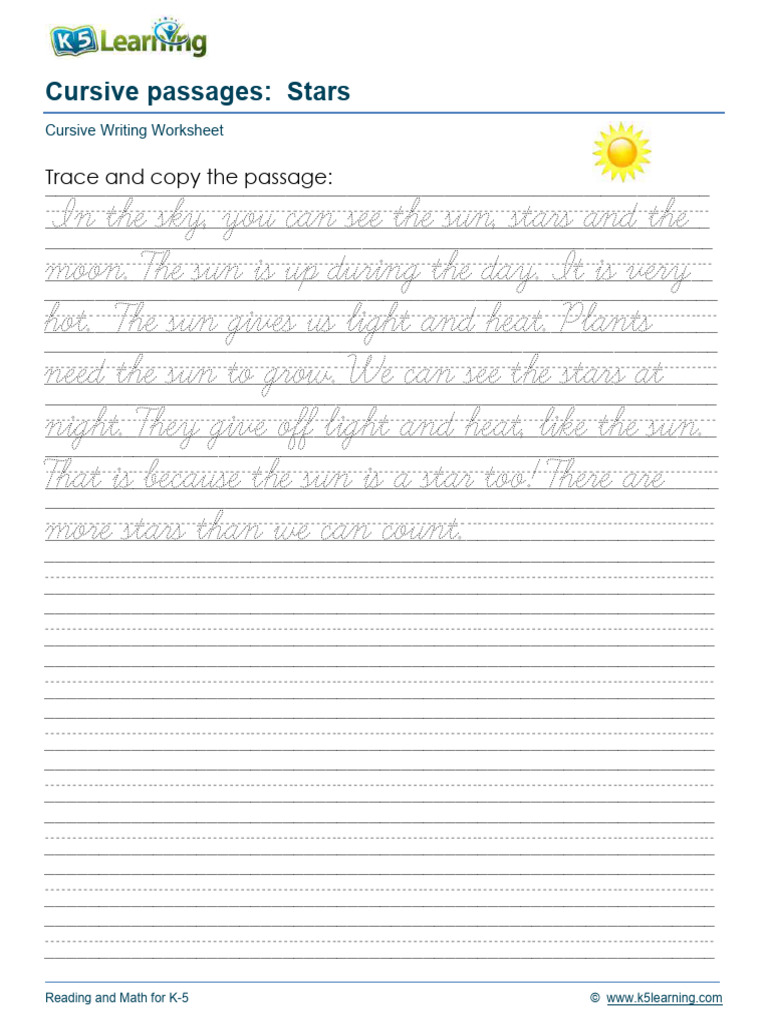 K5 Learning
Cursive passages:  Stars
Cursive Writing Worksheet
Trace and copy the passage:
In the sky, you can see the sun, stars and the
moon. The sun is up during the day. It is very
hot.  The sun gives us light and heat. Plants
need the sun to grow. We can see the stars at
night. They give off light and heat, like the sun.
That is because the sun is a star too! There are
more stars than we can count.
Reading and Math for K-5
© www.k5learning.com